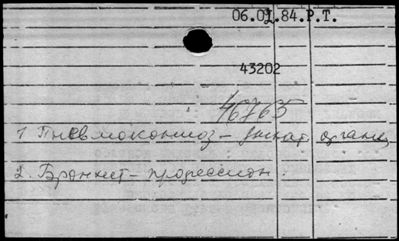 06.01.84.Р.Т.
43202
46765
1 Пневмокониоз – органы
2. Бронхит – профессион.